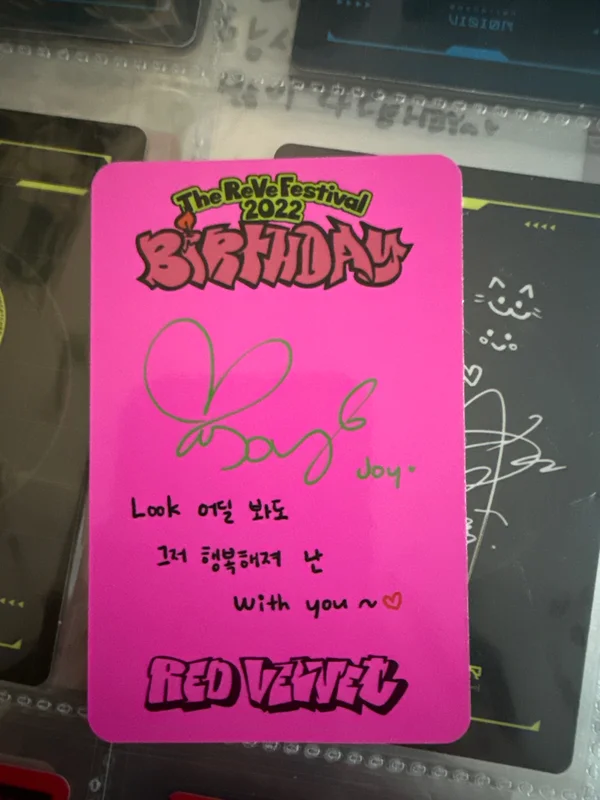 VISION
The ReVe Festival
2022
BIRTHDAY
Joy
Joy.
Look 어딜 봐도
그저 행복해져 난
with you ~ ♡
RED VELVET